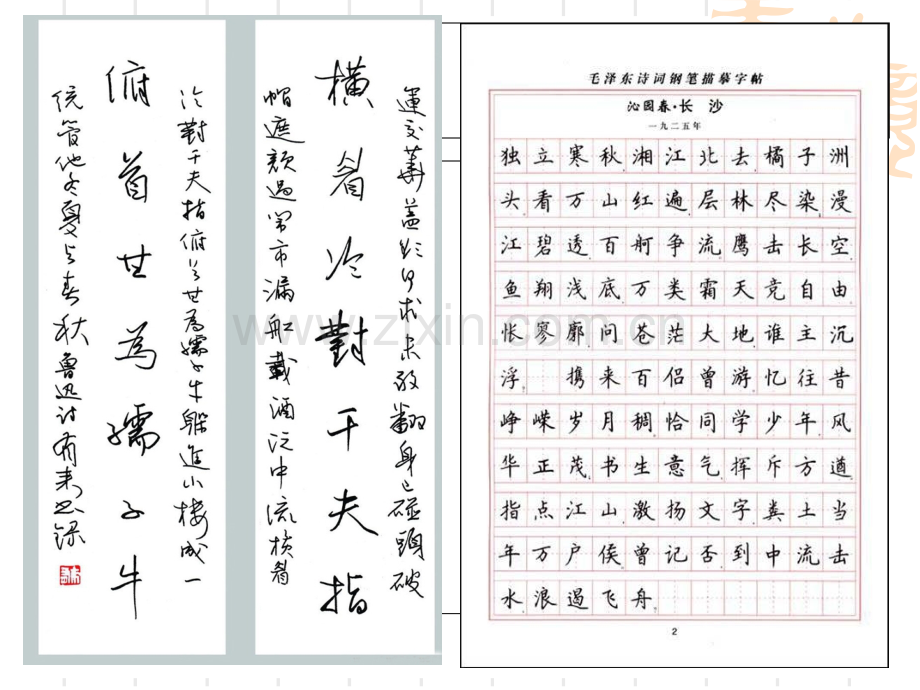 運交華蓋欲何求未敢翻身已碰頭破
横眉冷對千夫指
帽遮顏過鬧市漏船載酒泛中流横眉
冷對千夫指俯首甘為孺子牛躲進小樓成一
俯首甘為孺子牛
統管他冬夏与春秋 魯迅诗
毛泽东诗词钢笔描摹字帖
沁园春·长 沙
一九二五年
独立寒秋湘江北去橘子洲
头看万山红遍层林尽染漫
江碧透百舸争流鹰击长空
鱼翔浅底万类霜天竞自由
怅寥廓问苍茫大地谁主沉
浮 携来百侣曾游忆往昔
峥嵘岁月稠恰同学少年风
华正茂书生意气挥斥方遒
指点江山激扬文字粪土当
年万户侯曾记否到中流击
水浪遏飞舟
2
www.zixin.com.cn